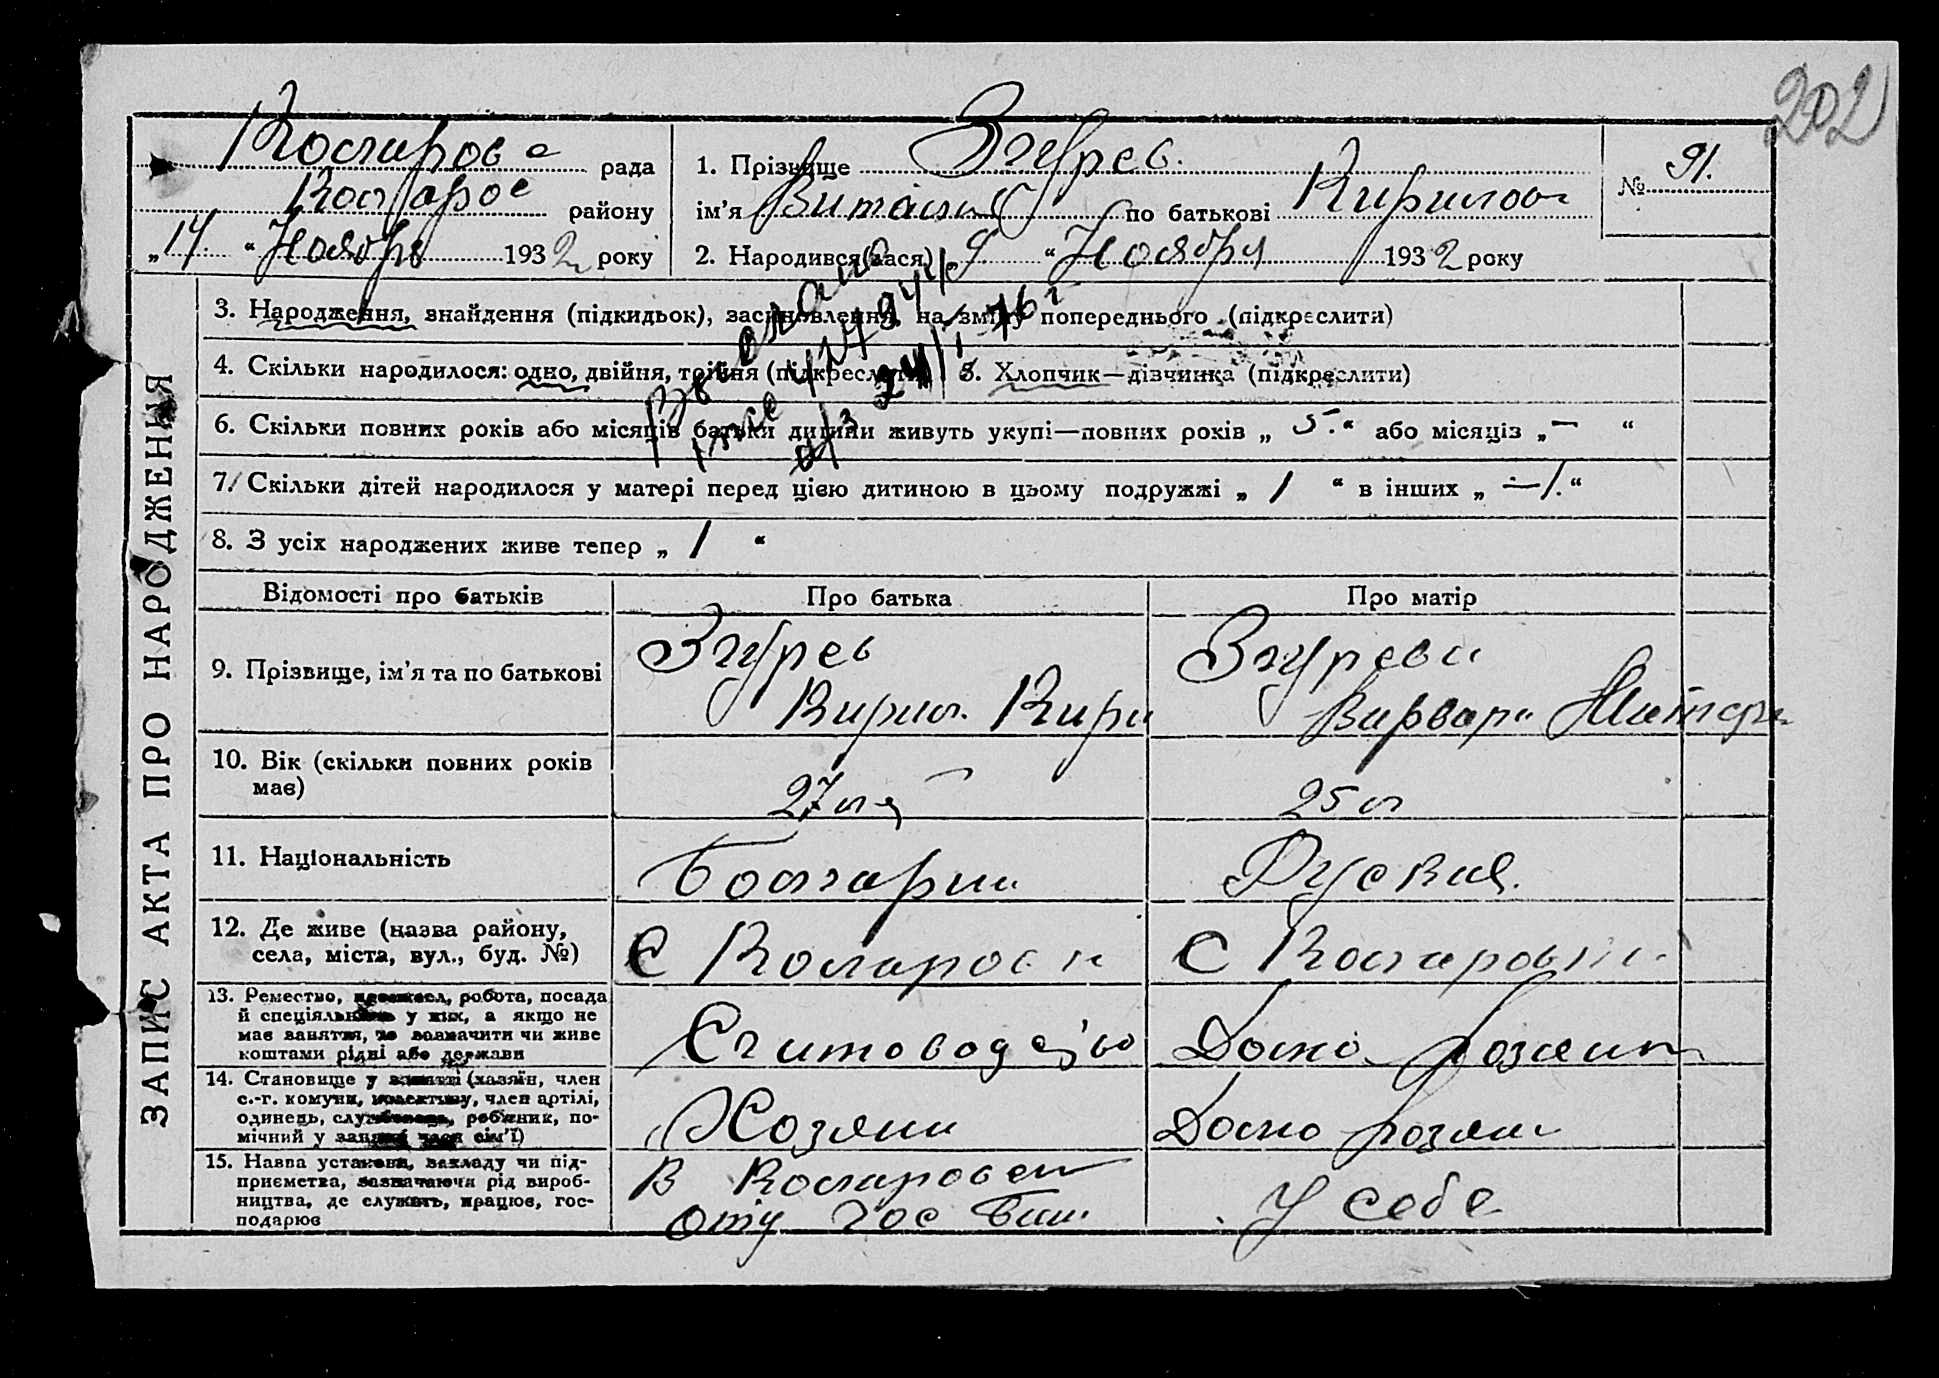 202
Коларовс рада
Коларовс району
„14“ Ноября 1932 року
1. Прізвище Згурев.
ім'я Виталий по батькові Кирилов
2. Народився(лася) „9“ Ноября 1932 року
№ 91.
ЗАПИС АКТА ПРО НАРОДЖЕННЯ
3. Народження, знайдення (підкидьок), засиновлення на зміну попереднього (підкреслити)
4. Скільки народилося: одно, двійня, трійня (підкреслити) 5. Хлопчик—дівчинка (підкреслити)
6. Скільки повних років або місяців батьки дитини живуть укупі—повних років „5.“ або місяців „—“
7. Скільки дітей народилося у матері перед цією дитиною в цьому подружжі „1“ в інших „—“
8. З усіх народжених живе тепер „1“
Відомості про батьків Про батька Про матір
9. Прізвище, ім'я та по батькові
Згурев
Кирил. Кири
Згурева
Варвара
10. Вік (скільки повних років має)
27 л
25 л
11. Національність
Болгарин
Руская.
12. Де живе (назва району,
села, міста, вул., буд. №)
С Коларовка
С Коларовка
13. Ремество, робота, посада
й спеціяльність у них, а якщо не
має заняття, то зазначити чи живе
коштами рідні або держави
Считоводство
Домо хозяин
14. Становище у занятті (хазяїн, член
с.-г. комуни, колективу, член артілі,
одинець, службовець, робітник, по-
мічний у занятті член сім'ї)
Хозяин
Домо хозяин
15. Назва установи, закладу чи під-
приємства, зазначаючи рід вироб-
ництва, де служить, працює, гос-
подарює
В Коларовск
Отд Гос Банк
У себе